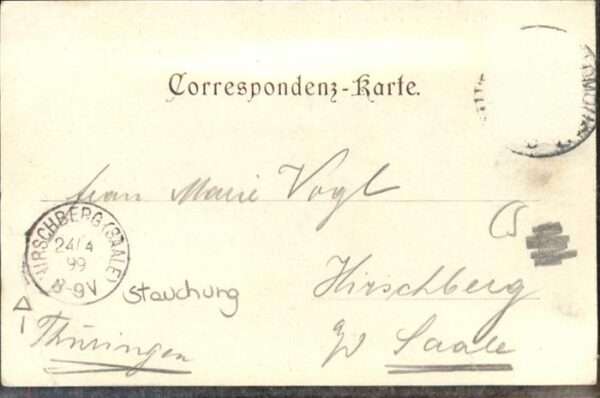 Correspondenz-Karte.
Frau Marie Vogl
HIRSCHBERG (SAALE)
24/4
99
8-9V
Stauchung
Hirschberg
Thüringen
Saale